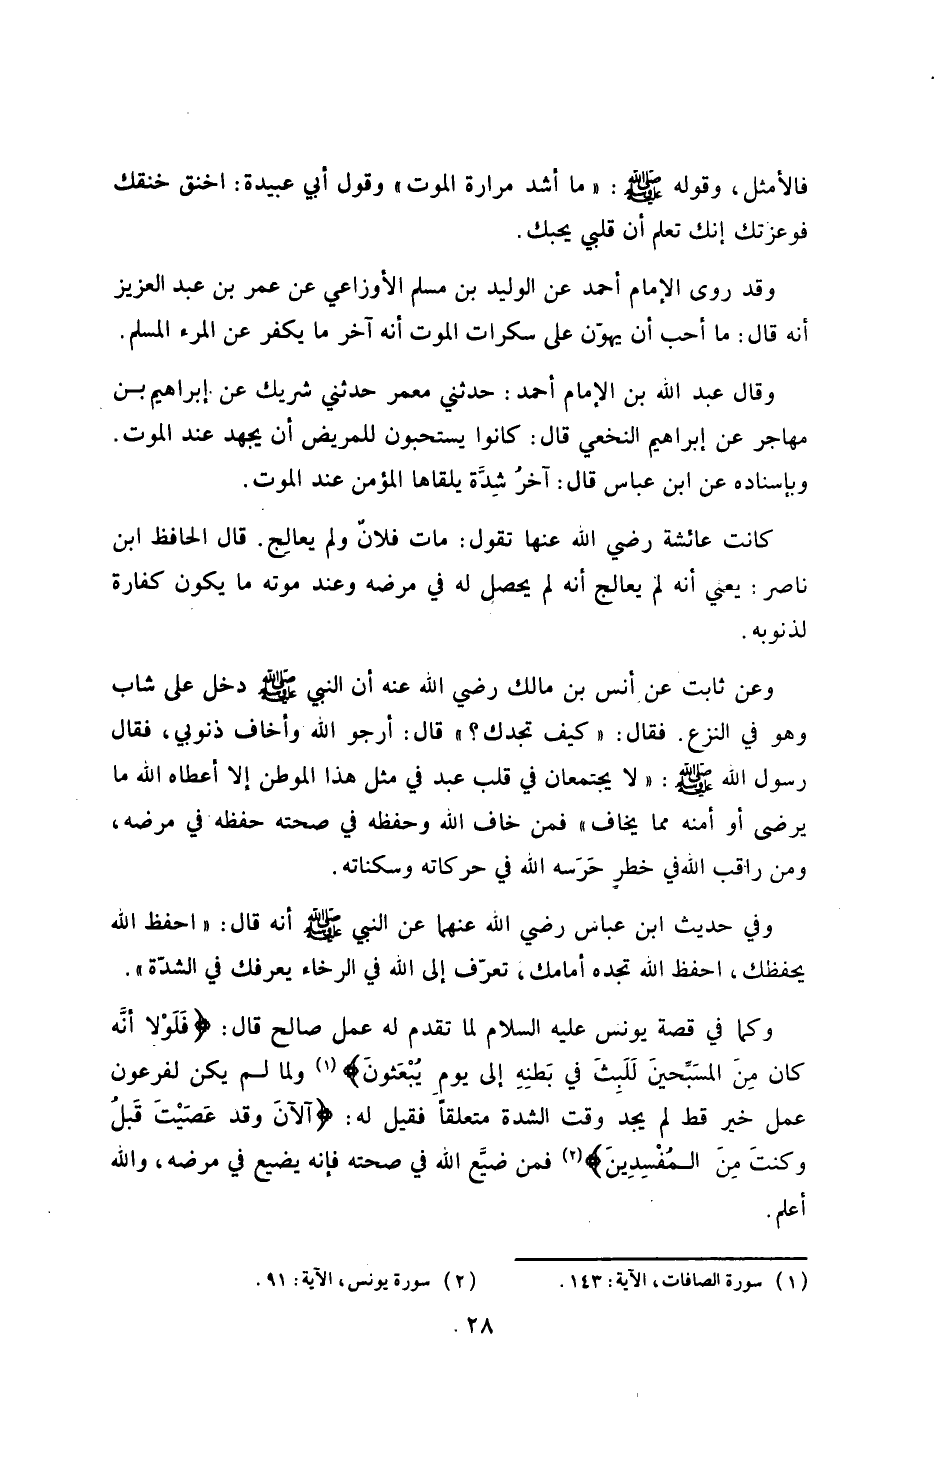 فالأمثل، وقوله ﷺ : « ما أشد مرارة الموت » وقول أبي عبيدة: اخنق خنقك
فوعزتك إنك تعلم أن قلبي يحبك .
وقد روى الإمام أحمد عن الوليد بن مسلم الأوزاعي عن عمر بن عبد العزيز
أنه قال: ما أحب أن يهوّن على سكرات الموت أنه آخر ما يكفر عن المرء المسلم .
وقال عبد الله بن الإمام أحمد : حدثني معمر حدثني شريك عن إبراهيم بن
مهاجر عن إبراهيم النخعي قال: كانوا يستحبون للمريض أن يجهد عند الموت .
وبإسناده عن ابن عباس قال: آخرُ شِدَّة يلقاها المؤمن عند الموت .
كانت عائشة رضي الله عنها تقول: مات فلانٌ ولم يعالج . قال الحافظ ابن
ناصر : يعني أنه لم يعالج أنه لم يحصل له في مرضه وعند موته ما يكون كفارة
لذنوبه .
وعن ثابت عن أنس بن مالك رضي الله عنه أن النبي ﷺ دخل على شاب
وهو في النزع . فقال: « كيف تجدك؟ » قال: أرجو الله وأخاف ذنوبي، فقال
رسول الله ﷺ : « لا يجتمعان في قلب عبد في مثل هذا الموطن إلا أعطاه الله ما
يرضى أو أمنه مما يخاف » فمن خاف الله وحفظه في صحته حفظه في مرضه،
ومن راقب الله في خطرٍ حَرَسه الله في حركاته وسكناته .
وفي حديث ابن عباس رضي الله عنهما عن النبي ﷺ أنه قال: « احفظ الله
يحفظك، احفظ الله تجده أمامك، تعرّف إلى الله في الرخاء يعرفك في الشدّة » .
وكما في قصة يونس عليه السلام لما تقدم له عمل صالح قال: ﴿فَلَوْلا أنَّه
كان مِنَ المسَبِّحينَ لَلَبِثَ في بَطنِهِ إلى يومِ يُبْعَثونَ﴾ (١) ولما لم يكن لفرعون
عمل خير قط لم يجد وقت الشدة متعلقاً فقيل له: ﴿آلآنَ وقد عَصَيْتَ قَبلُ
وكنتَ مِنَ المُفْسِدِينَ﴾ (٢) فمن ضيَّع الله في صحته فإنه يضيع في مرضه، والله
أعلم .
(١) سورة الصافات، الآية: ١٤٣ .
(٢) سورة يونس، الآية: ٩١ .
٢٨ .